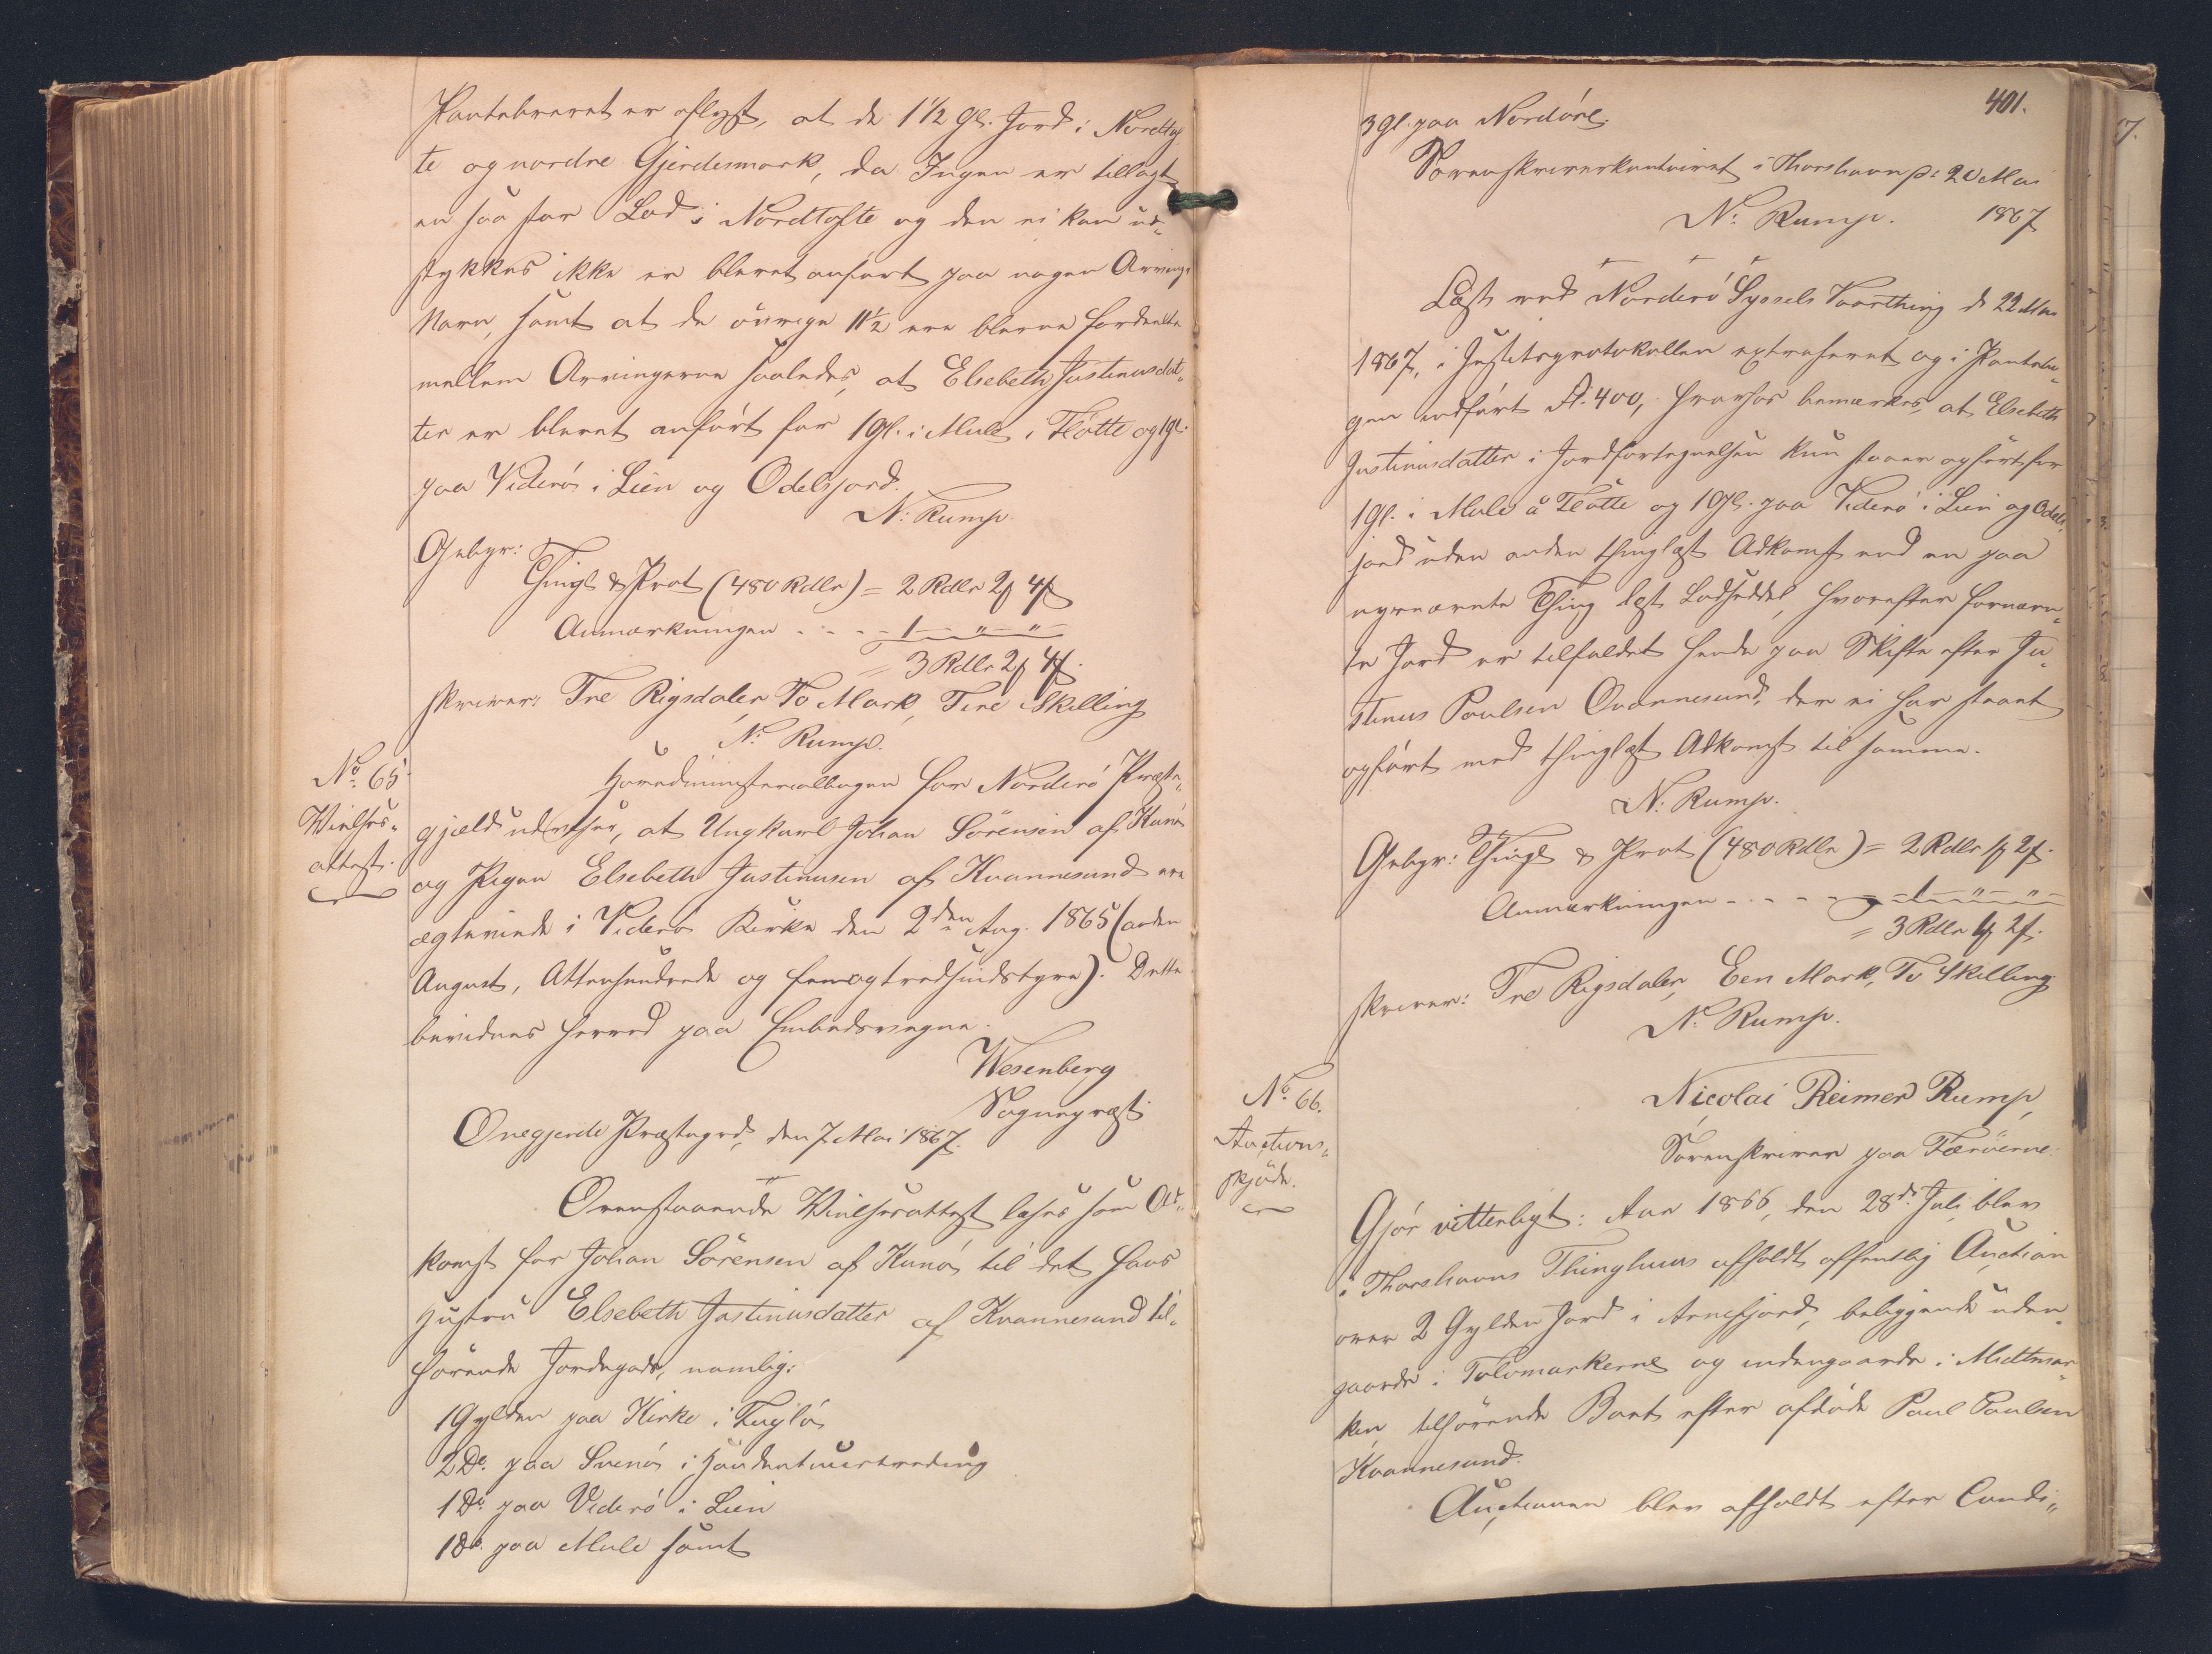 Pantebrevet er aflyst, at de 1 1/2 Gl. Jord i Nordtof
te og nordre Gjerdesmark, da Ingen er tillagt
en saa stor Lod i Nordtofte og den ei kan ud„
stykkes ikke er blevet anført paa nogen Arvings
Navn, samt at de øvrige 11 1/2 ere blevne fordeelte
mellem Arvingerne saaledes, at Elsebeth Justinusdat„
ter er blevet anført for 1 Gl. i Mule i Tøtte og 1 Gl.
paa Viderø i Lien og Odelsjord.
N: Rump.
Gebyr:
Thingl & Prot (480 Rdlr) = 2 Rdlr 2 ƒ 4 ß
Anmærkningen . . . - 1 — „ — „ —
= 3 Rdlr 2 ƒ 4 ß.
skriver: Tre Rigsdaler To Mark, Fire Skilling
N: Rump.
No. 65
Vielses„
attest.
Hovedministerialbogen for Norderø Præste„
gjæld udviser, at Ungkarl Johan Sørensen af Kunø
og Pigen Elsebeth Justinusen af Kvannesund ere
ægteviede i Viderø Kirke den 2den Aug. 1865 (anden
August, Attenhundrede og femogtredsindstyve). Dette
bevidnes herved paa Embedsvegne.
Wesenberg
Sognepræst
Onegjerde Præstegrd, den 7 Mai 1867.
Ovenstaaende Vielsesattest læses som Ad„
komst for Johan Sørensen af Kunø til det hans
Hustru Elsebeth Justinusdatter af Kvannesund til„
hørende Jordegods, nemlig:
1 Gylden paa Kirke i Fuglø
2 Do. paa Svinø i
1 Do. paa Viderø i Lien
1 Do. paa Mule samt
401.
3 Gl. paa Nordøre.
Sorenskriverkontoiret i Thorshavn p: 20 Mai
N: Rump. 1867
Læst ved Norderø Syssels Vaarthing d. 22 Mai
1867, i Justitsprotokollen extraheret og i Pantebo„
gen indført Fl. 400, hvorhos bemærkes, at Elsebeth
Justinusdatter i Jordfortegnelsen kun staaer opført for
1 Gl. i Mule i Tøtte og 1 Gl. paa Viderø i Lien og Odels„
jord uden anden thinglæst Adkomst end en paa
nysnævnte Thing læst Lodseddel, hvorefter fornævn„
te Jord er tilfaldet hende paa Skifte efter Ju„
stinus Poulsen Qvannesund, der ei har staaet
opført med thinglæst Adkomst til samme.
N: Rump.
Gebyr: Thingl & Prot (480 Rdlr) = 2 Rdlr 1 ƒ 2 ß.
Anmærkningen - . . - - 1 — „ — „ —
= 3 Rdlr 1 ƒ 2 ß.
skriver: Tre Rigsdaler, Een Mark, To Skilling
N: Rump.
No. 66.
Auctions„
skjøde.
Nicolai Reimer Rump,
Sorenskriver paa Færøerne.
Gjør vitterligt: Aar 1866, den 28de Juli blev
i Thorshavns Thinghuus afholdt offentlig Auction
over 2 Gylden Jord i Arnefjord, beliggende uden„
gaards i Tolvmarkerne og indengaards i Midtmar„
ken, tilhørende Boet efter afdøde Paul Paulsen
Kvannesund.
Auctionen blev afholdt efter Condi„